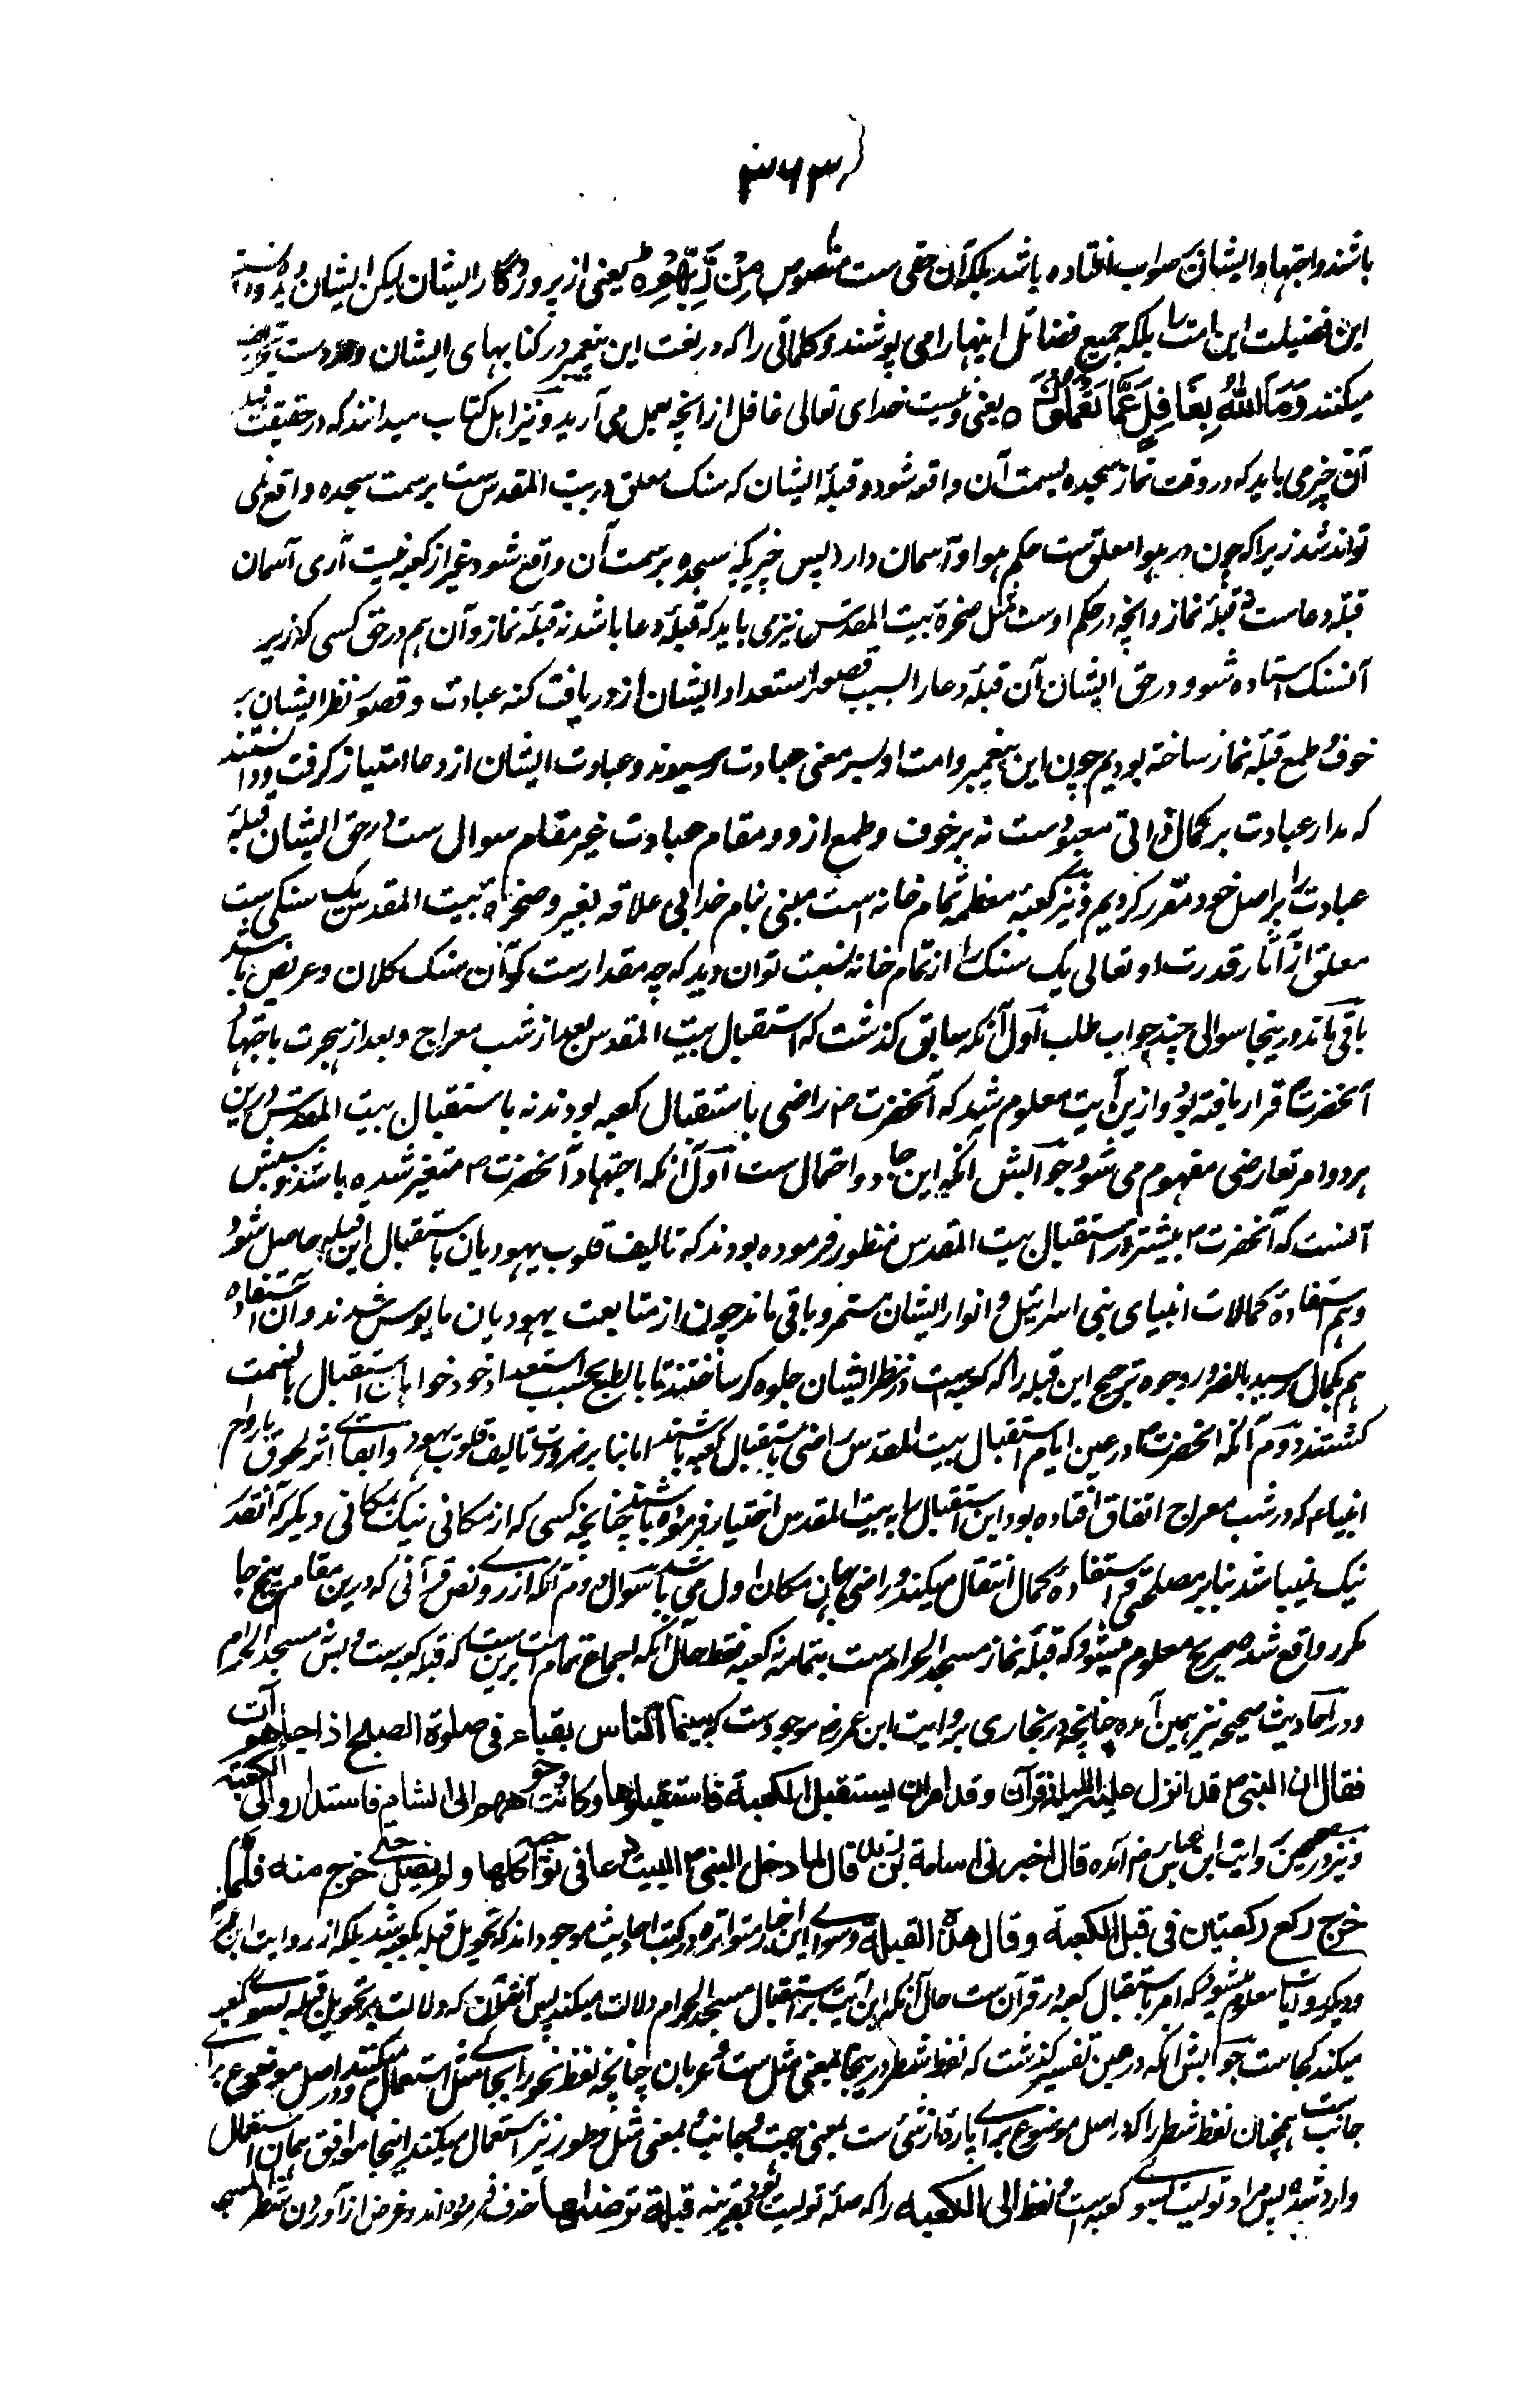 ۳۶۳
باشند واجتهاد ایشان بر صواب افتاده باشد بلکه آن حقی ست منصوص مِنْ رَّبِّهِمْ یعنی از پروردگار ایشان لیکن ایشان دیده و دانسته
این فضیلت این امت را بلکه جمیع فضائل اینها را می پوشند و کلماتی را که در نعت این پیغمبر در کتابهای ایشان وارد ست تحریف
میکنند وَمَا اللّٰهُ بِغَافِلٍ عَمَّا تَعْمَلُوْنَ ه یعنی و نیست خدای تعالی غافل از انچه بعمل می آرید و نیز اهل کتاب میدانند که در حقیقت قبله
آن چیز می باید که در وقت نماز سجده بسمت آن واقع شود و قبلهٔ ایشان که سنک معلق در بیت المقدس ست بر سمت سجده واقع نمی
تواند شد زیرا که چون در هوا معلق ست حکم هوا و آسمان دارد پس چیزیکه سجده بر سمت آن واقع شود غیر از کعبه نیست آری آسمان
قبلهٔ دعاست نه قبلهٔ نماز و انچه در حکم اوست مثل صخرهٔ بیت المقدس نیز می باید که قبلهٔ دعا باشد نه قبلهٔ نماز و آن هم در حق کسی که زیر
آن سنک استاده شود و در حق ایشان آن قبلهٔ دعا را بسبب قصور استعداد ایشان از دریافت کنه عبادت و قصور نظر ایشان بر
خوف و طمع قبلهٔ نماز ساخته بودیم چون این پیغمبر و امت او بسر معنی عبادت رسیدند و عبادت ایشان از دعا امتیاز گرفت و دانستند
که مدار عبادت بر کمال ذاتی معبودست نه بر خوف و طمع ازو و مقام عبادت غیر مقام سوال ست در حق ایشان قبلهٔ
عبادت را بر اصل خود مقرر کردیم و نیز کعبه معظمه تمام خانه است مبنی بنام خدا بی علاقه بغیر و صخرهٔ بیت المقدس یک سنکی ست
معلق از آثار قدرت او تعالی یک سنک را از تمام خانه نسبت توان دید که چه مقدارست گو آن سنک کلان و عریض باشد
باقی ماند درینجا سوالی چند جواب طلب اول آنکه سابق گذشت که استقبال بیت المقدس بعد از شب معراج و بعد از هجرت باجتهاد
آنحضرت ص قرار یافته بود و ازین آیت معلوم شد که آنحضرت ص راضی باستقبال کعبه بودند نه باستقبال بیت المقدس درین
هر دو امر تعارضی مفهوم می شود جوابش انکه این جا دو احتمال ست اول آنکه اجتهاد آنحضرت ص متغیر شده باشد و سببش
آنست که آنحضرت ص بیشتر در استقبال بیت المقدس منظور فرموده بودند که تالیف قلوب یهودیان باستقبال این قبله حاصل شود
و هم استفادهٔ کمالات انبیای بنی اسرائیل و انوار ایشان مستمر و باقی ماند چون از متابعت یهودیان مایوس شدند و آن استفاده
هم بکمال رسید بالضرور وجوه ترجیح این قبله را که کعبه است در نظر ایشان جلوه گر ساختند تا بالطبع بحسب استعداد خود خواهان استقبال بانسمت
گشتند دوم آنکه آنحضرت ص در عین ایام استقبال بیت المقدس راضی باستقبال کعبه باشند اما بنابر ضرورت تالیف قلوب یهود و ابقای اثر لحوق بارواح
انبیاء که در شب معراج اتفاق افتاده بود این استقبال را به بیت المقدس اختیار فرموده باشند چنانچه کسی که از مکانی نیک بمکانی دیگر که آنقدر
نیک نمیباشد بنابر مصلحتی و استفادهٔ کمال انتقال میکند و راضی بهمان مکان اول می باشد سوال دوم آنکه از روی نص قرآنی که درین مقام پنج جا
مکرر واقع شد صریح معلوم میشود که قبلهٔ نماز مسجد الحرام ست بتمامه نه کعبه فقط حال آنکه اجماع تمام امت برین ست که قبله کعبه ست و بس نه مسجد الحرام
و در احادیث صحیحه نیز همین آمده چنانچه در بخاری بروایت ابن عمر رض موجودست که بینما الناس بقباء فی صلوة الصبح اذ جاءهم آت
فقال ان النبی ص قد انزل علیه اللیلة قرآن وقد امر ان یستقبل الکعبة فاستقبلوها وکانت وجوههم الی الشام فاستداروا الی الکعبة
و نیز در صحیحین روایت ابن عباس رض آمده قال اخبرنی اسامة بن زید قال لما دخل النبی ص البیت دعا فی نواحیه کلها ولم یصل حتی خرج منه فلما
خرج رکع رکعتین فی قبل الکعبة وقال هذه القبلة و سوای این اخبار متواتره در کتب احادیث موجود اند که تحویل قبله بکعبه شد بلکه از روایت ابن عمر رض
و دیگر روایات معلوم میشود که امر باستقبال کعبه در قرآن ست حال آنکه این آیت بر استقبال مسجد الحرام دلالت میکند پس آن قرآن که دلالت بر تحویل قبله بسوی کعبه
میکند کجاست جوابش آنکه در عین تفسیر گذشت که لفظ شطر درینجا بمعنی مثل ست و عربان چنانچه لفظ نحو را بجای مثل استعمال میکنند و در اصل موضوع برای
جانب ست همچنان لفظ شطر را که در اصل موضوع برای پارهٔ از شئ ست بمعنی جهت و جانب و بمعنی مثل و طور نیز استعمال میکنند اینجا موافق همان استعمال
وارد شده پس مراد تولیت بسوی کعبه است و لفظ الی الکعبه را که صلهٔ تولیت بود بقرینه قبلة ترضاها حذف فرمودند و غرض از آوردن شطر المسجد